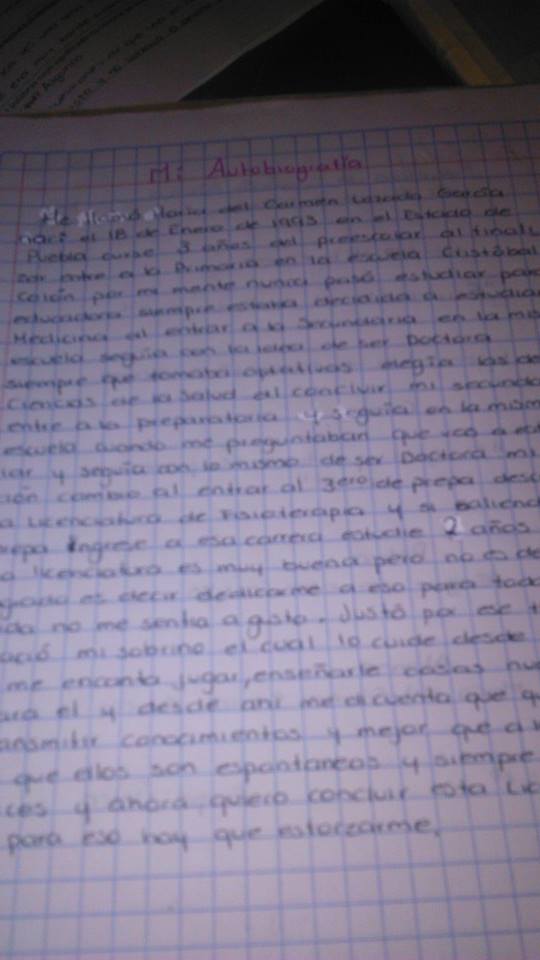 Mi Autobiografía
Me llamo Maria del Carmen García
naci el 18 de Enero de en el Estado de
Puebla curse 3 años del preescolar al finali
zar entre a la Primaria en la escuela Cristóbal
Colón por mi mente nunca pasó estudiar para
educadora siempre estaba decidida a estudia
Medicina al entrar a la Secundaria en la mis
escuela seguía con la idea de ser Doctora
siempre que tomaba optativas elegía las de
Ciencias de la Salud al concluir mi secunda
entre a la preparatoria y seguía en la mism
escuela cuando me preguntaban que vas a est
iar y seguía con lo mismo de ser Doctora mi
ión cambio al entrar al 3ero de prepa desc
a Licenciatura de Fisioterapia y si
repa Ingrese a esa carrera estudie 2 años
a licenciatura es muy buena pero no es de
grado es decir dedicarme a eso para toda
da no me sentia agusto. Justó por ese t
ació mi sobrino el cual lo cuide desde
me encanta jugar, enseñarle cosas nue
ara el y desde ahi me di cuenta que qu
ansmitir conocimientos y mejor que a
que ellos son espontaneos y siempre
ices y ahora quiero concluir esta Lic
para eso hay que esforzarme.